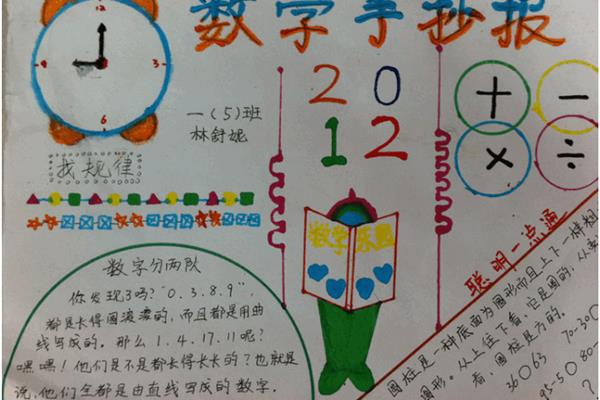 数学手抄报
9
3
6
一(5)班
林舒妮
20
12
+
−
×
÷
找规律
数学乐园
数字分两队
你发现了吗?"0.3.8.9"
都是长得圆滚滚的,而且都是用曲
线写成的。那么1.4.17.11呢?
嘿嘿!他们是不是都长得长长的?也就是
说,他们全都是由直线写成的数字.
聪明一点通
圆柱是一种底面为圆形而且上下一样粗
图形。从上往下看,它是圆的,从
看,圆柱是方的。
36 63
70-30
95-50
80-
?